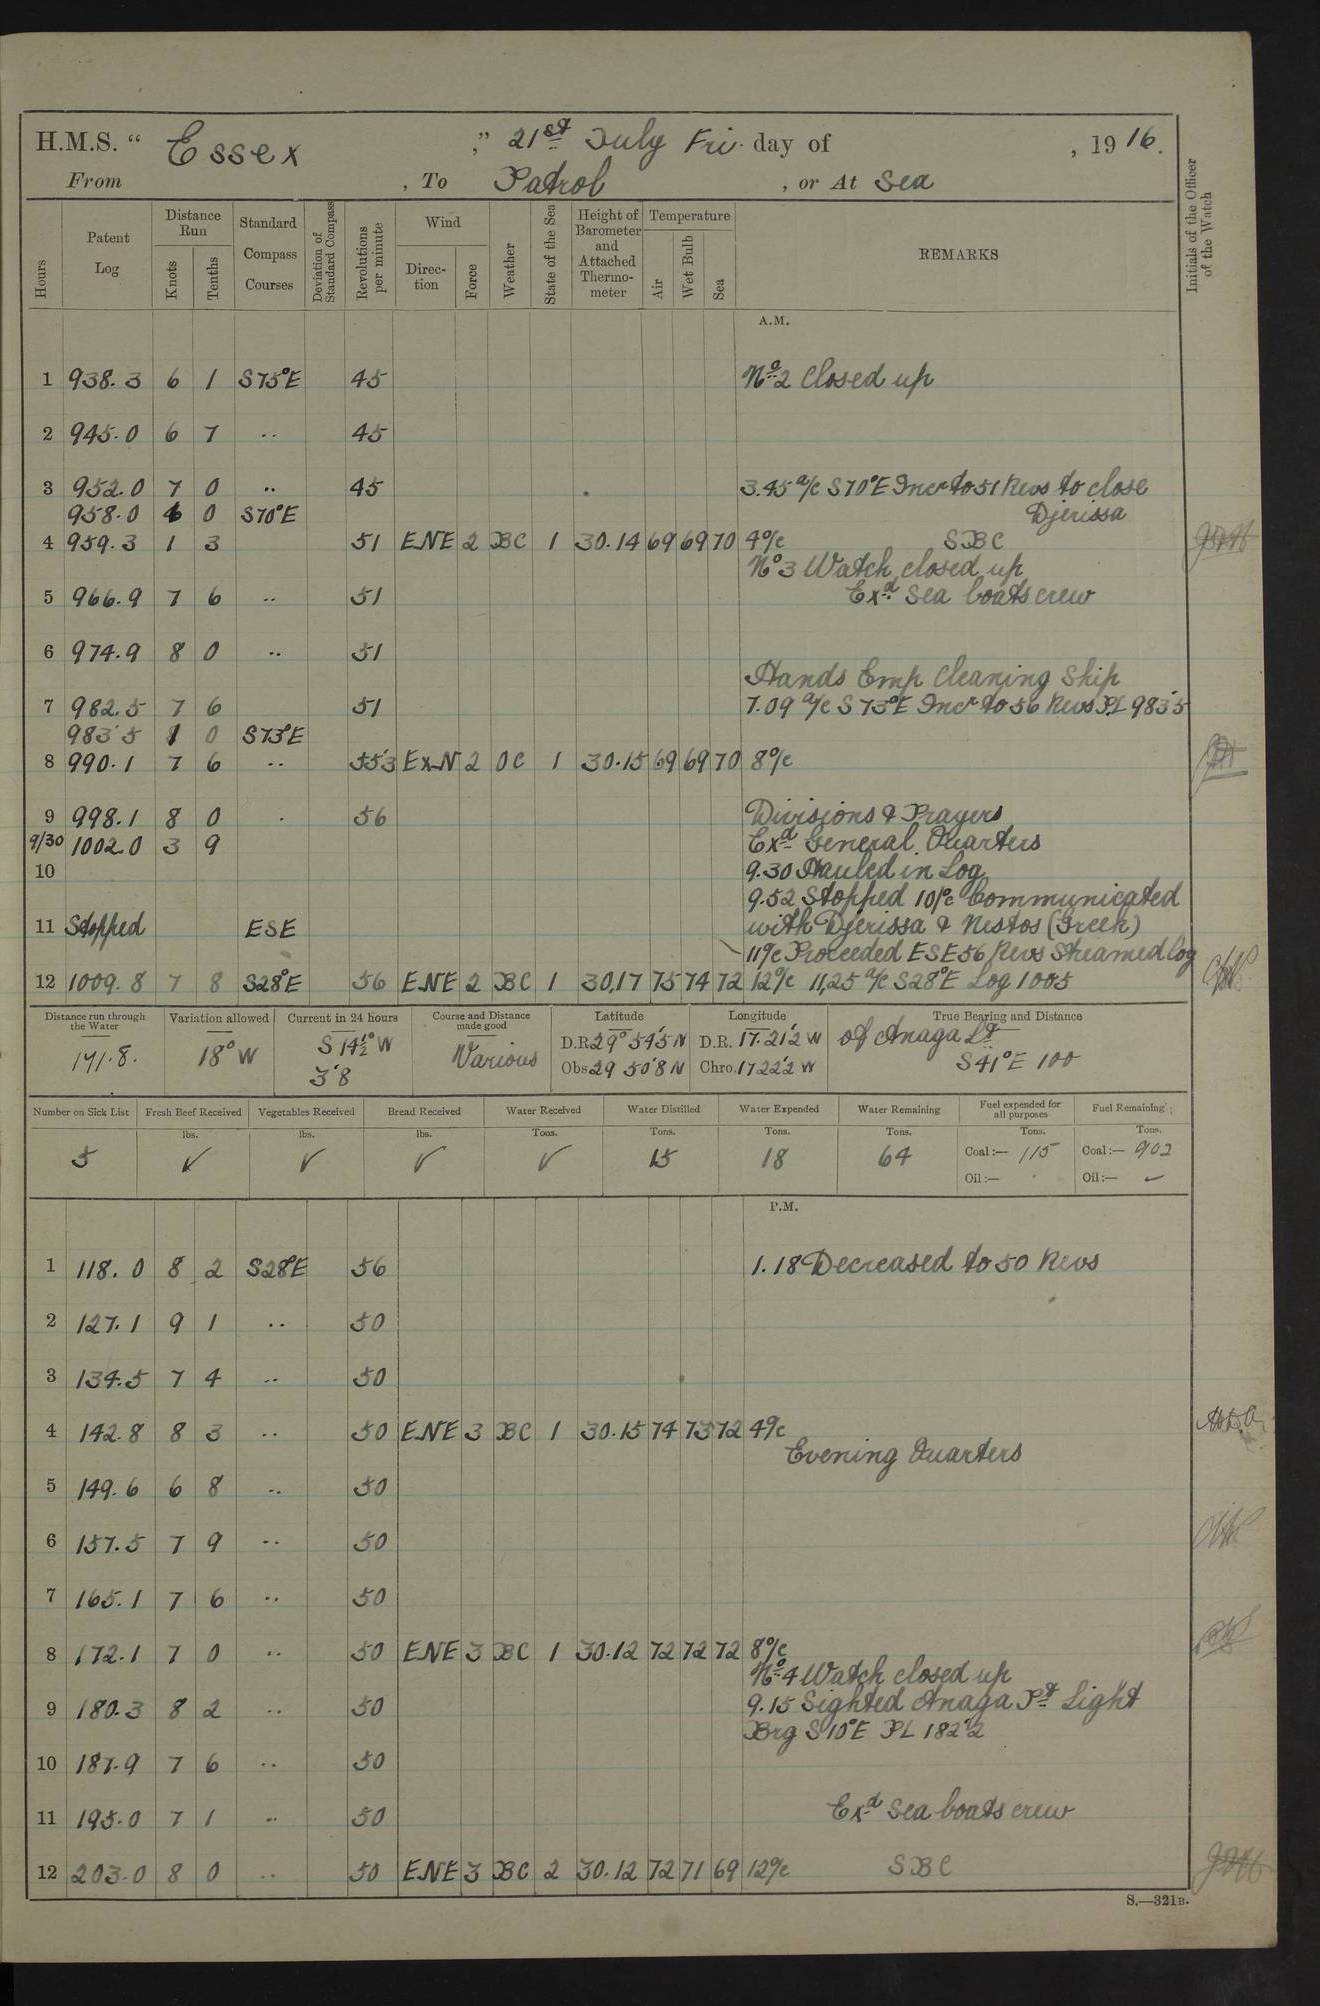 H.M.S. “ Essex ,” 21st July Fri. day of , 19 16.
From , To Patrol , or At Sea
Hours Patent Log Distance Run Knots Tenths Standard Compass Courses Deviation of Standard Compass Revolutions per minute Wind Direction Force Weather State of the Sea Height of Barometer and Attached Thermometer Temperature Air Wet Bulb Sea REMARKS Initials of the Officer of the Watch
A.M.
1 938.3 6 1 S75°E 45 No. 2 Closed up
2 945.0 6 7 .. 45
3 952.0 7 0 .. 45 3.45 a/c S70°E Incr to 51 Revs to close
958.0 6 0 S70°E Djerissa
4 959.3 1 3 51 ENE 2 BC 1 30.14 69 69 70 4o/c SBC
No 3 Watch closed up
5 966.9 7 6 .. 51 Exd Sea boats crew
6 974.9 8 0 .. 51
Hands Emp Cleaning Ship
7 982.5 7 6 51 7.09 a/c S73°E Incr to 56 Revs PL 983.5
983.5 1 0 S73°E
8 990.1 7 6 .. 55.3 ExN 2 OC 1 30.15 69 69 70 8o/c
9 998.1 8 0 . 56 Divisions & Prayers
9/30 1002.0 3 9 Exd General Quarters
10 9.30 Hauled in Log
9.52 Stopped 10o/c Communicated
11 Stopped ESE with Djerissa & Nestos (Greek)
11o/c Proceeded ESE 56 Revs Streamed Log
12 1009.8 7 8 S28°E 56 ENE 2 BC 1 30,17 75 74 72 12o/c 11,25 a/c S28°E Log 1005
Distance run through the Water Variation allowed Current in 24 hours Course and Distance made good Latitude Longitude True Bearing and Distance
171.8. 18° W S 14½° W 3'8 Various D.R. 29° 54'5 N D.R. 17.21'2 W of Anaga Lt
Obs 29 50'8 N Chro. 17 22'2 W S 41° E 100
Number on Sick List Fresh Beef Received Vegetables Received Bread Received Water Received Water Distilled Water Expended Water Remaining Fuel expended for all purposes Fuel Remaining
lbs. lbs. lbs. Tons. Tons. Tons. Tons. Tons. Tons.
5 ✓ ✓ ✓ ✓ 15 18 64 Coal:— 115 Coal:— 902
Oil:— Oil:— ✓
P.M.
1 118.0 8 2 S28°E 56 1.18 Decreased to 50 Revs
2 127.1 9 1 .. 50
3 134.5 7 4 .. 50
4 142.8 8 3 .. 50 ENE 3 BC 1 30.15 74 73 72 4o/c
Evening Quarters
5 149.6 6 8 .. 50
6 157.5 7 9 .. 50
7 165.1 7 6 .. 50
8 172.1 7 0 .. 50 ENE 3 BC 1 30.12 72 72 72 8o/c
No. 4 Watch closed up
9 180.3 8 2 .. 50 9.15 Sighted Anaga Pt Light
Brg S10°E PL 182.2
10 187.9 7 6 .. 50
11 195.0 7 1 .. 50 Exd Sea boats crew
12 203.0 8 0 .. 50 ENE 3 BC 2 30.12 72 71 69 12o/c SBC
S.—321B.